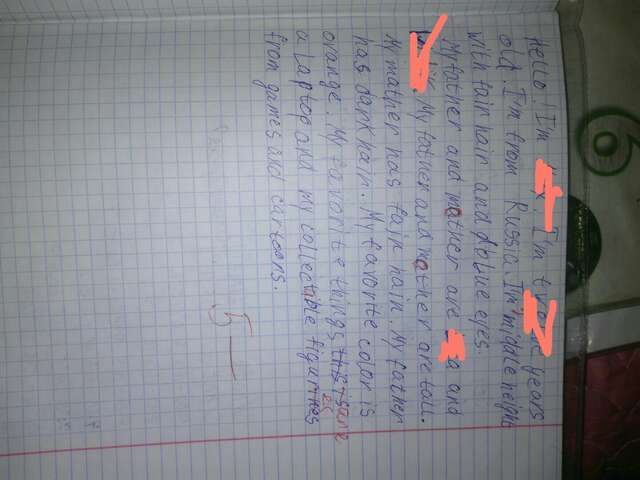 Hello! I'm years
old. I'm from Russia. I'm middle heigh
with fair hair and blue eyes.
My father and mather are and
My father and mather are tall.
My mather has fair hair. My father
has dark hair. My favorite color is
orange. My favorite things are
a laptop and my collectible figurines
from games and cartoons.
5-
6